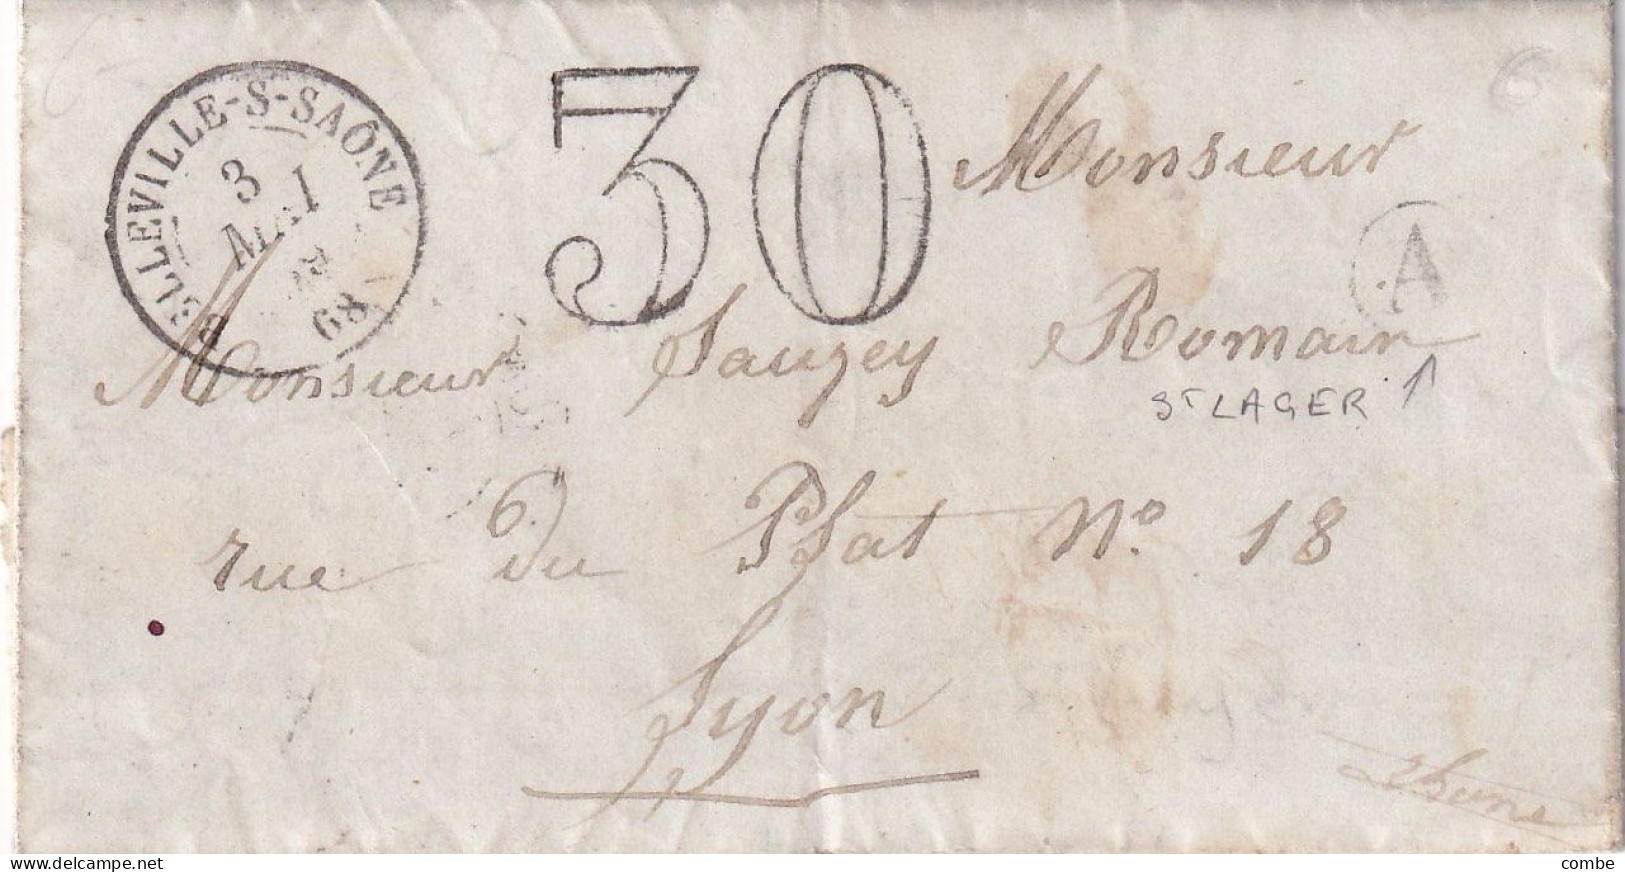 BELLEVILLE-S-SAÔNE
3
MAI
68
30
Monsieur
A
Monsieur Sauzey Romain
ST LAGER
rue du Plat No. 18
Lyon
Rhone
combe